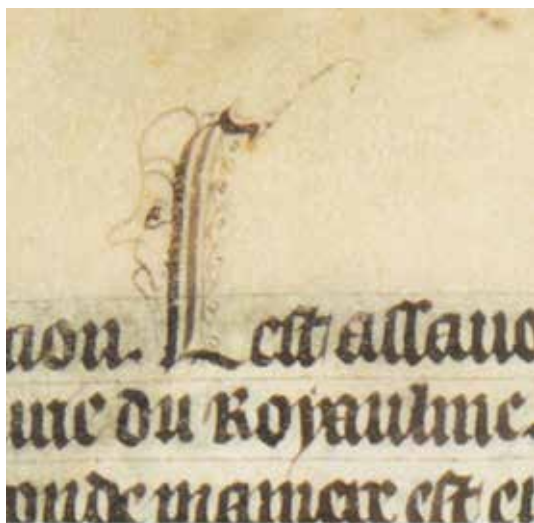 cion. Cest assauo
du Royaulme.
onde maniere est